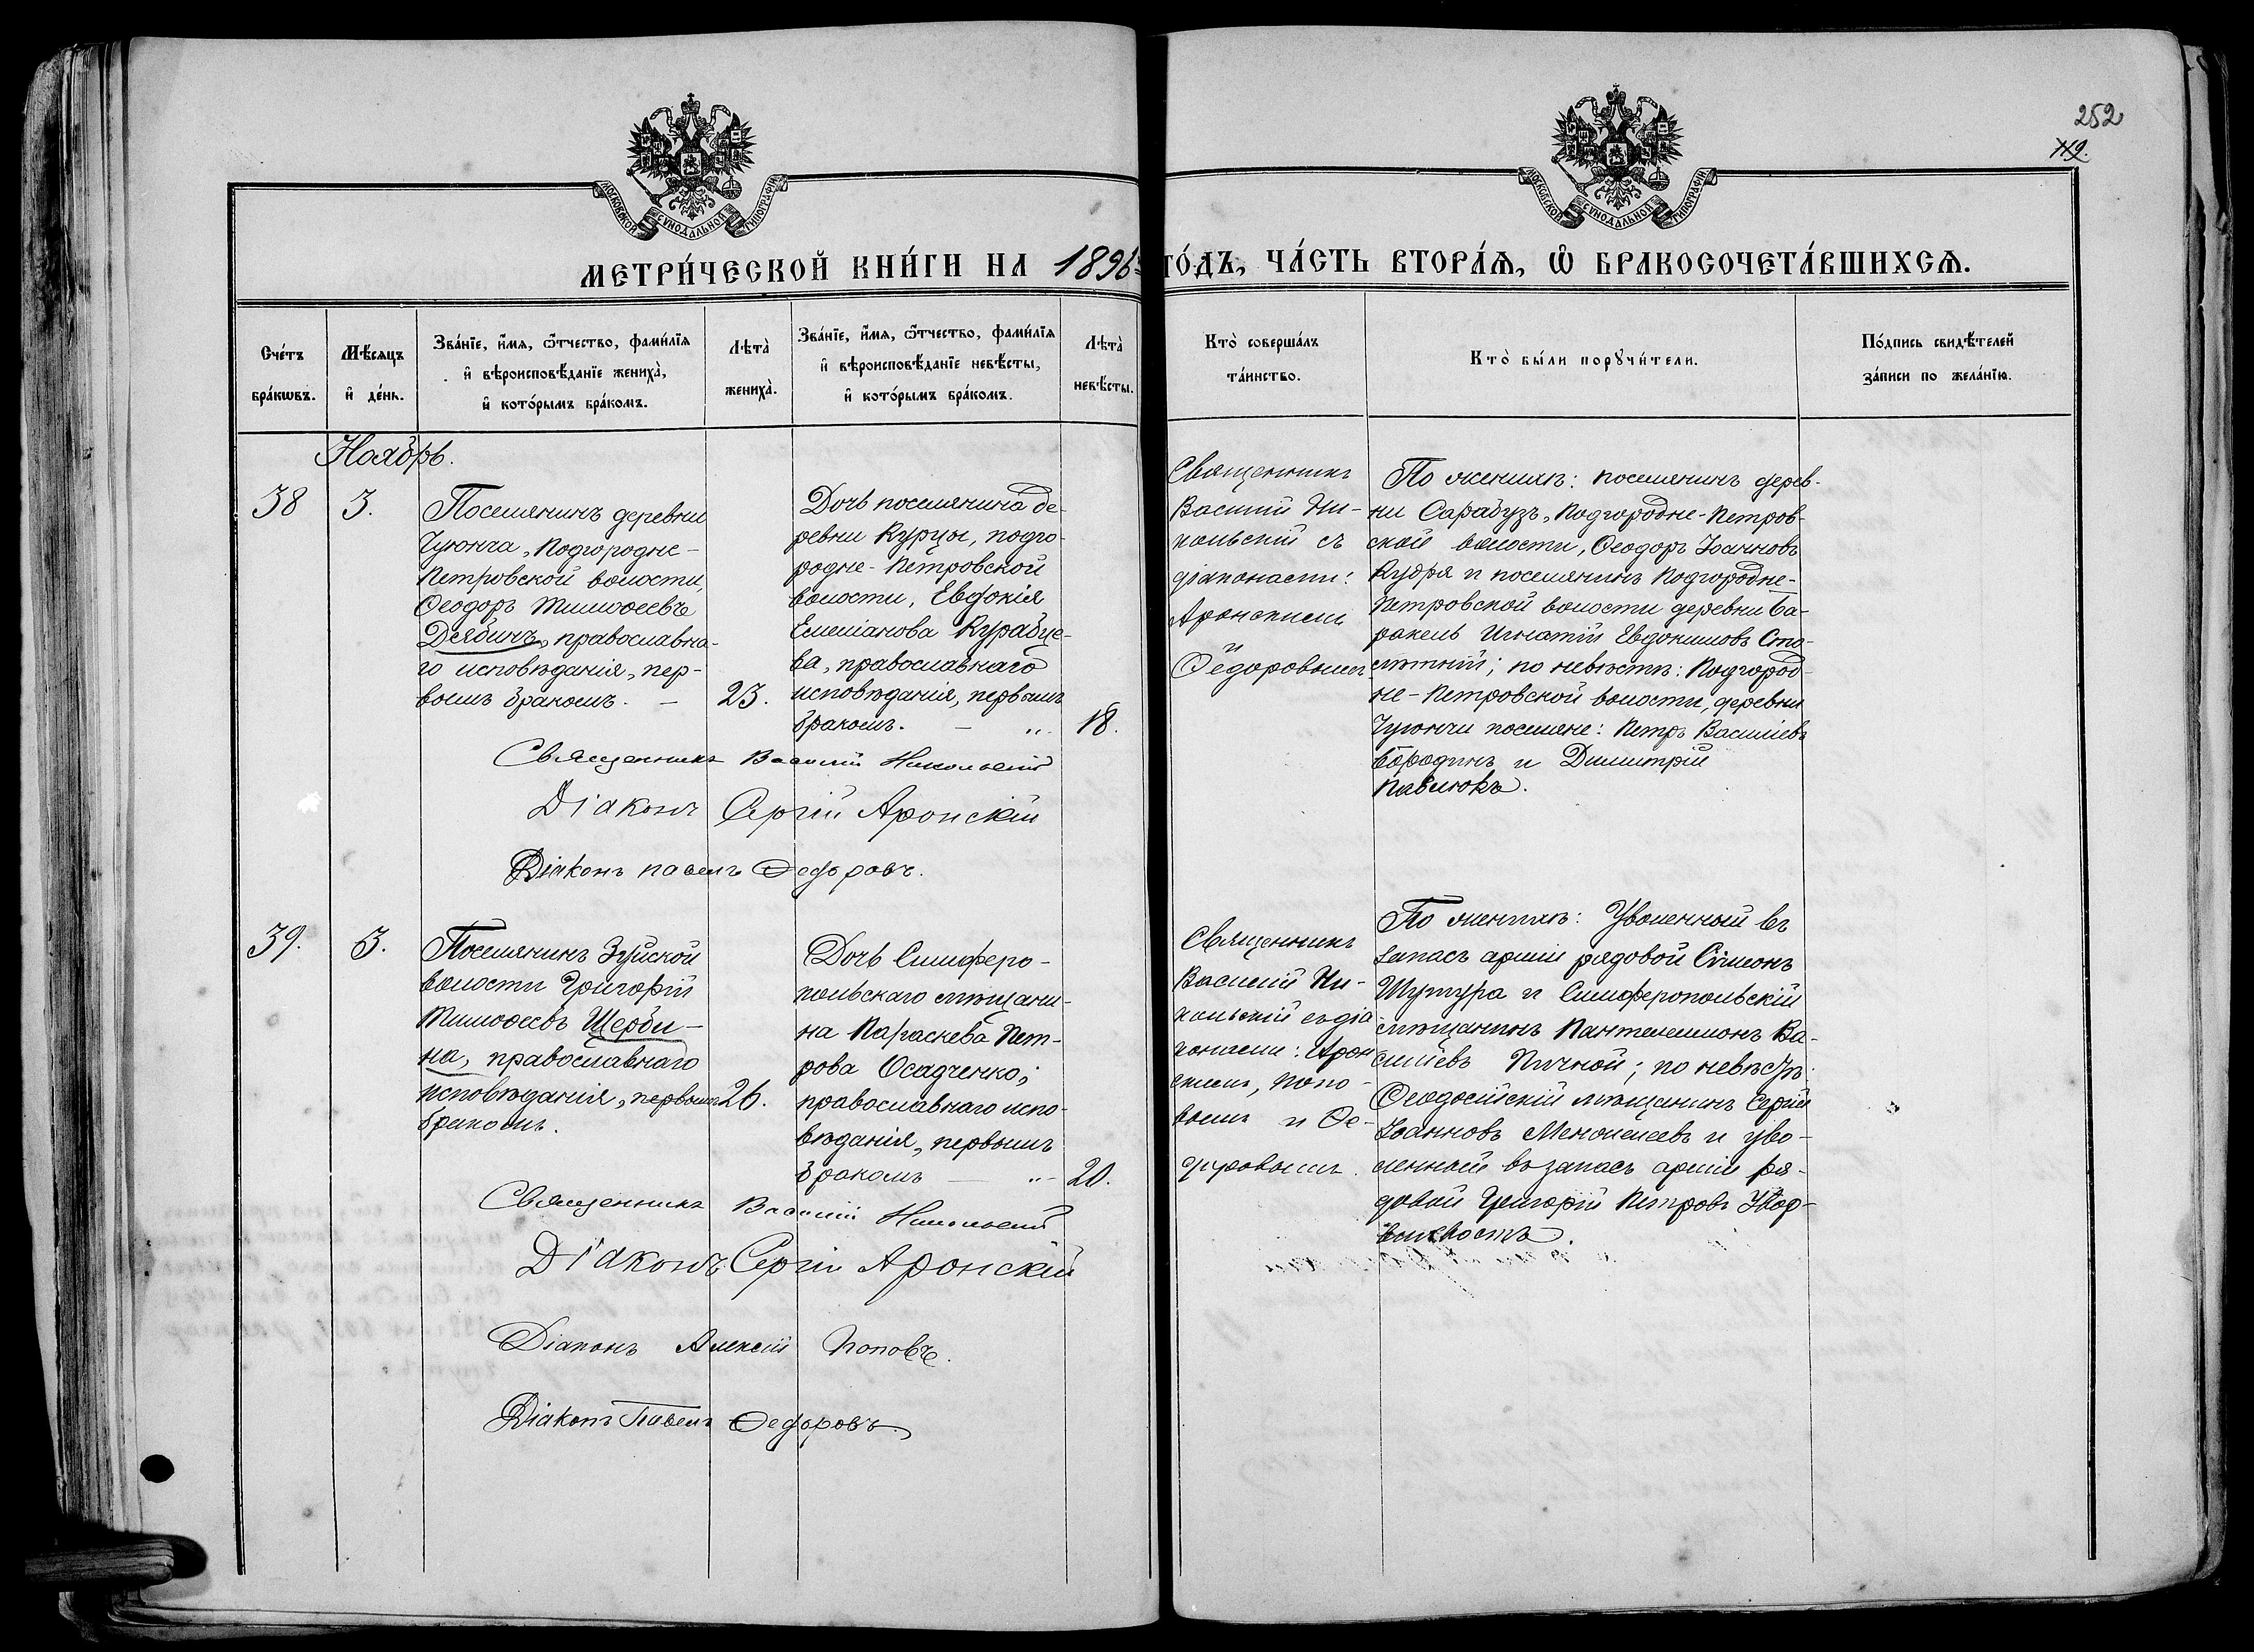 252
119.
МОСКОВСКОЙ СѴНОДАЛЬНОЙ ТИПОГРАФІИ
МОСКОВСКОЙ СѴНОДАЛЬНОЙ ТИПОГРАФІИ
МЕТРИ́ЧЕСКОЙ КНИ́ГИ НА 1896 ГО́ДЪ, ЧА́СТЬ ВТОРА́Ѧ, Ѡ БРАКОСОЧЕТА́ВШИХСѦ.
Сче́тъ
бра́кѡвъ.
Мѣ́сяцъ
и҆ де́нь.
Зва́нїе, и҆́мѧ, ѻ҆́тчество, фами́лїѧ
и҆ вѣроисповѣ́данїе жениха̀,
и҆ кото́рымъ бра́комъ.
Лѣта̀
жениха̀.
Зва́нїе, и҆́мѧ, ѻ҆́тчество, фами́лїѧ
и҆ вѣроисповѣ́данїе невѣ́сты,
и҆ кото́рымъ бра́комъ.
Лѣта̀
невѣ́сты.
Кто̀ соверша́лъ
та́инство.
Кто̀ бы́ли порꙋчи́тели.
По́дпись свидѣ́телей
за́писи по жела́нїю.
Ноябрь.
38
3.
Поселянинъ деревни
Чуюнча, Подгородне-
Петровской волости,
Ѳеодоръ Тимоѳеевъ
Дсябинъ, православна-
го исповѣданія, пер-
вымъ бракомъ. —
23.
Дочь поселянина де-
ревни Курцы, подго-
родне-Петровской
волости, Евдокія
Емеліанова Курабце-
ва, православнаго
исповѣданія, первымъ
бракомъ. —
18.
Священникъ
Василій Ни-
кольскій съ
діаконами:
Аронскимъ
и
Ѳедоровымъ
По женихѣ: поселянинъ дерев-
ни Сарабузъ, Подгородне-Петров-
ской волости, Ѳеодоръ Іоанновъ
Кудря и поселянинъ Подгородне-
Петровской волости деревни Ба-
ракель Игнатій Евдокимовъ Сто-
лѣтній; по невѣстѣ: Подгород-
не-Петровской волости, деревни
Чуюнчи поселяне: Петръ Василіевъ
Бородинъ и Димитрій
Павлюкъ.
Священникъ Василій Никольскій
Діаконъ Сергій Аронскій
Діаконъ Павелъ Ѳедоровъ.
39.
3.
Поселянинъ Зуйской
волости Григорій
Тимоѳеевъ Щерби-
на, православнаго
исповѣданія, первымъ
бракомъ.
26.
Дочь Симферо-
польскаго мѣщани-
на Параскева Пет-
рова Осадченко,
православнаго испо-
вѣданія, первымъ
бракомъ —
20.
Священникъ
Василій Ни-
кольскій съ діа
конами: Арон
скимъ, Попо-
вымъ и Ѳе-
доровымъ.
По женихѣ: Уволенный въ
запасъ арміи рядовой Сѵмеонъ
Шутура и Симферопольскій
мѣщанинъ Пантелеимонъ Ва-
силіевъ Пичной; по невѣстѣ:
Ѳеодосійскій мѣщанинъ Сергій
Іоанновъ и уво-
ленный въ запасъ арміи ря-
довой Григорій Петровъ
Священникъ Василій Никольскій
Діаконъ Сергій Аронскій
Діаконъ Алексій Поповъ.
Діаконъ Павелъ Ѳедоровъ.